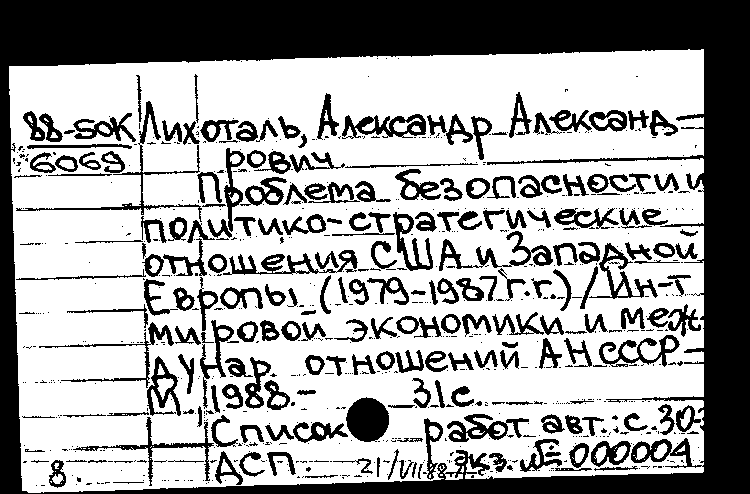 88-5ОК Лихоталь, Александр Александ-
6069 рович.
Проблема безопасности и
политико-стратегические
отношения США и Западной
Европы (1979-1987 г.г.) / Ин-т
мировой экономики и меж-
дунар. отношений АН СССР.-
М., 1988.- 31 с.
Список работ авт.: с. 30-
ДСП. экз. № 000004
8. 21/VII88